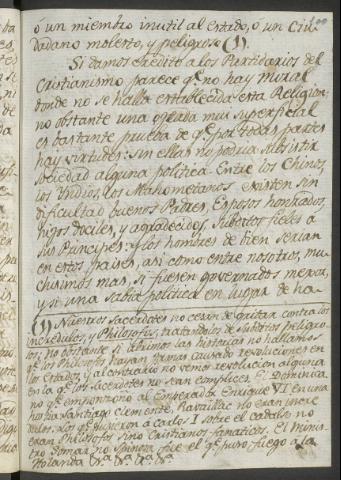 ó un miembro inutil al Estado, ó un Ciu-
dadano molesto, y peligroso (1).
Si damos credito a los Partidarios del
Christianismo parece qe. no hay Moral
donde no se halla establecida esta Religion;
no obstante una ojeada muy superficial
es bastante prueba de qe. por todas partes
hay virtudes: sin ellas no podria subsistir
sociedad alguna politica. Entre los Chinos,
los Yndios, los Mahometanos existen sin
dificultad buenos Padres, Esposos honrrados,
hijos dociles, y agradecidos, Subditos fieles a
sus Principes: y los hombres de bien serian
en estos paises, asi como entre nosotros, mu-
chisimos mas, si fuesen governados mejor,
y si una sabia politica en lugar de ha-
(1) Nuestros Sacerdotes no cesan de gritar contra los
incredulos, y Philosofos, tratandolos de Subditos peligro-
sos; no obstante si abrimos las historias no hallamos
qe. los Philosofos hayan jamas causado revoluciones en
los Estados; y al contrario no vemos revolucion alguna
en la qe. los Sacerdotes no sean complices. El Dominica-
no qe. emponzoñó al Emperador Enrique VI en una
hostia, Santiago Clemente, Ravaillac no eran incre
dulos. Los qe. pusieron a Carlos I sobre el cadalso no
eran Philosofos sino Christianos fanaticos. El Minis-
tro Gomar, no Spinosa fue el qe. puso fuego a la
Holanda &a. &a. &a. &a.